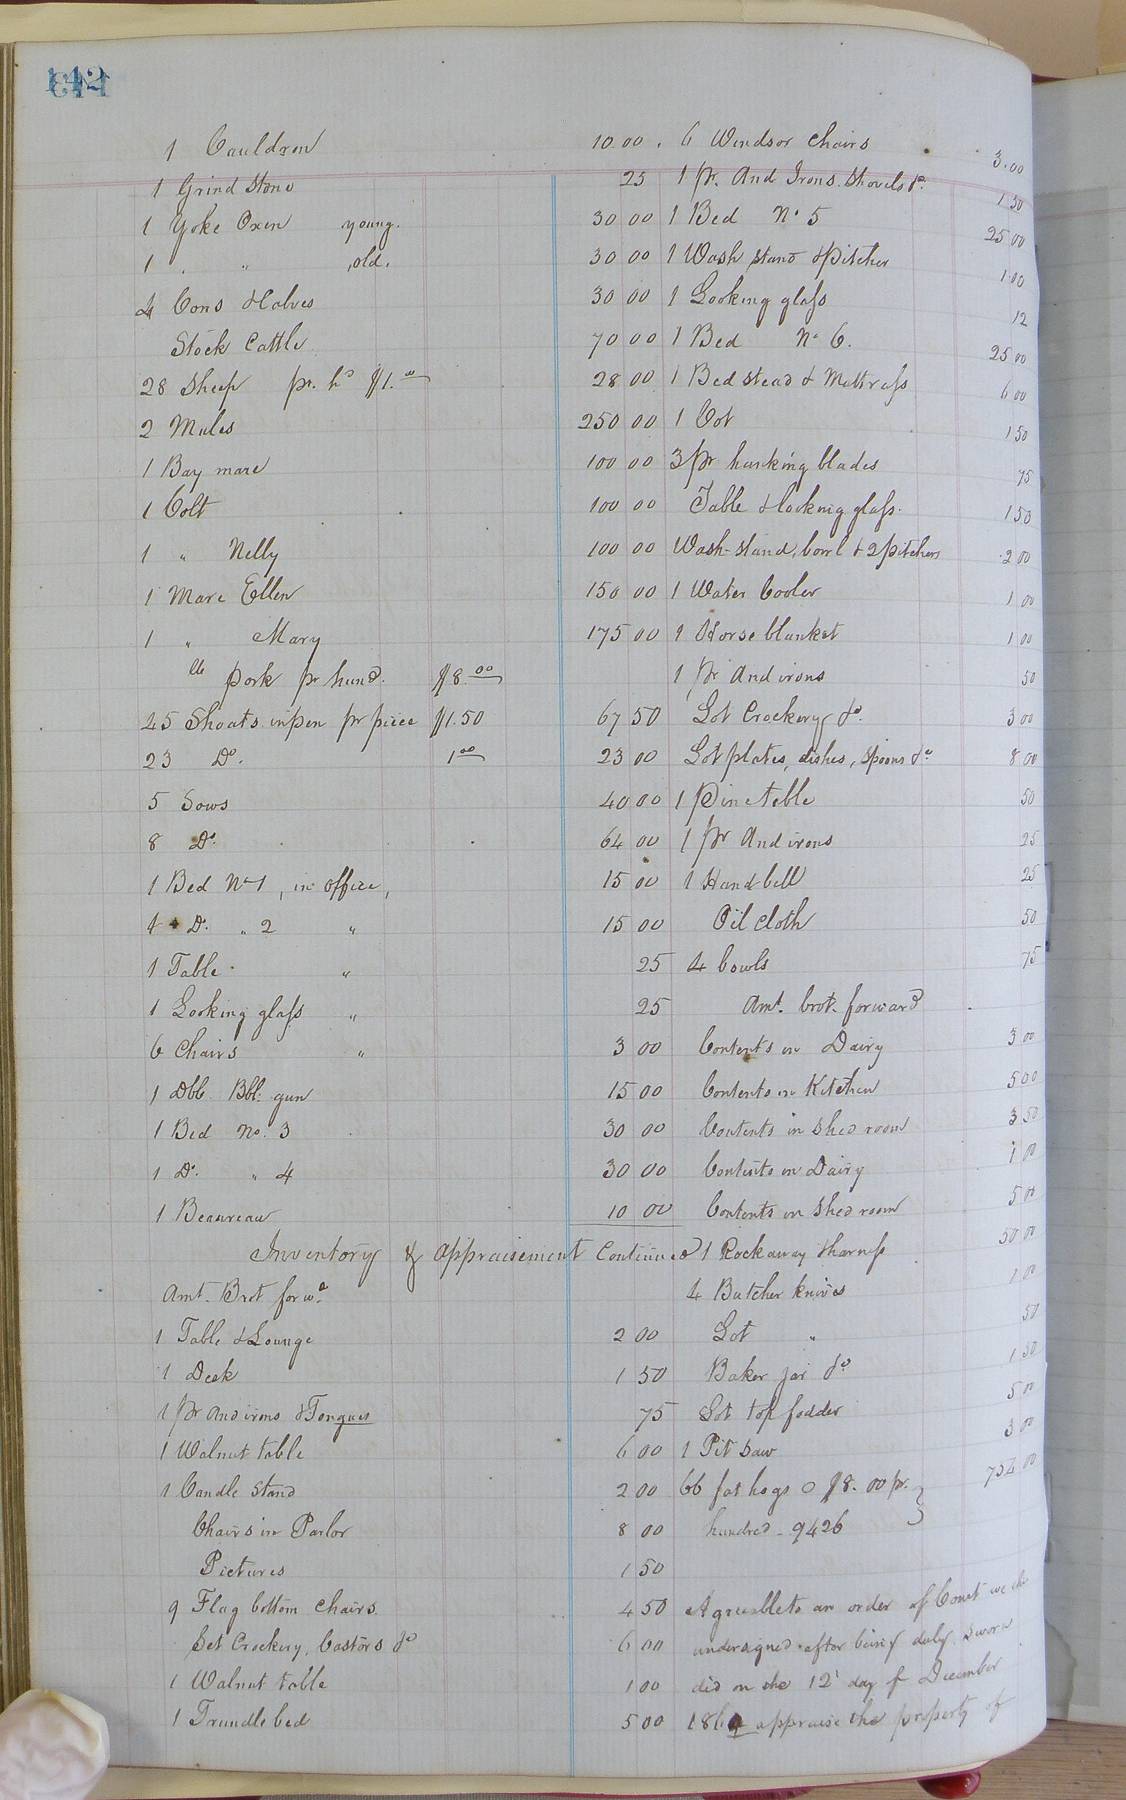 142
1 Cauldron 10.00
1 Grind Stone 25
1 Yoke Oxen young. 30 00
1 " " old. 30 00
4 Cows & Calves 30 00
Stock Cattle 70 00
28 Sheep pr. hd $1.00 28 00
2 Mules 250 00
1 Bay mare 100 00
1 Colt 100 00
1 " Nelly 100 00
1 Mare Ellen 150 00
1 " Mary 175 00
lb pork pr hund. $8.00
25 Shoats in pen pr piece $1.50 67 50
23 Do. 1 00 23 00
5 Sows 40 00
8 Do. 64 00
1 Bed No 1, in office, 15 00
1 Do. " 2 " 15 00
1 Table " 25
1 Looking glass " 25
6 Chairs " 3 00
1 Dbb Bbl: gun 15 00
1 Bed No. 3 30 00
1 Do. " 4 30 00
1 Beaureau 10 00
Inventory & appraisement Continued
Amt. Brot forwd
1 Table & Lounge 2 00
1 Desk 1 50
1 pr andirons & Tongues 75
1 Walnut table 6 00
1 Candle Stand 2 00
Chairs in Parlor 8 00
Pictures 1 50
9 Flag bottom Chairs. 4 50
Set Crockery, Castors &c 6 00
1 Walnut table 1 00
1 Trundle bed 5 00
6 Windsor Chairs 3.00
1 pr. And Irons. Shovels &c. 1 50
1 Bed No 5 25 00
1 Wash stand & Pitcher 1 00
1 Looking glass 12
1 Bed No 6. 25 00
1 Bed stead & Mattrass 6 00
1 Cot 1 50
3 pr husking blades 75
Table & looking glass. 1 50
Wash-stand, bowl & 2 pitchers 2 00
1 Water Cooler 1 00
1 Horse blanket 1 00
1 pr And irons 50
Lot Crockery &c. 3 00
Lot plates, dishes, spoons &c 8 00
1 Pine table 50
1 pr And irons 25
1 Hand bell 25
Oil cloth 50
4 bowls 75
Amt. brot. forward
Contents in Dairy 3 00
Contents in Kitchen 5 00
Contents in Shed room 3 50
Contents in Dairy 1 00
Contents in Shed room 5 00
1 Rockaway & harness 50 00
4 Butcher knives 1 00
Lot " 50
Baker jar &c 1 50
Lot top fodder 5 00
1 Pit Saw 3 00
66 fat hogs @ $8.00 pr. } 754 00
hundred - 9426
Agreeable to an order of Court we the
undersigned after being duly sworn
did on the 12' day of December
appraise the property of